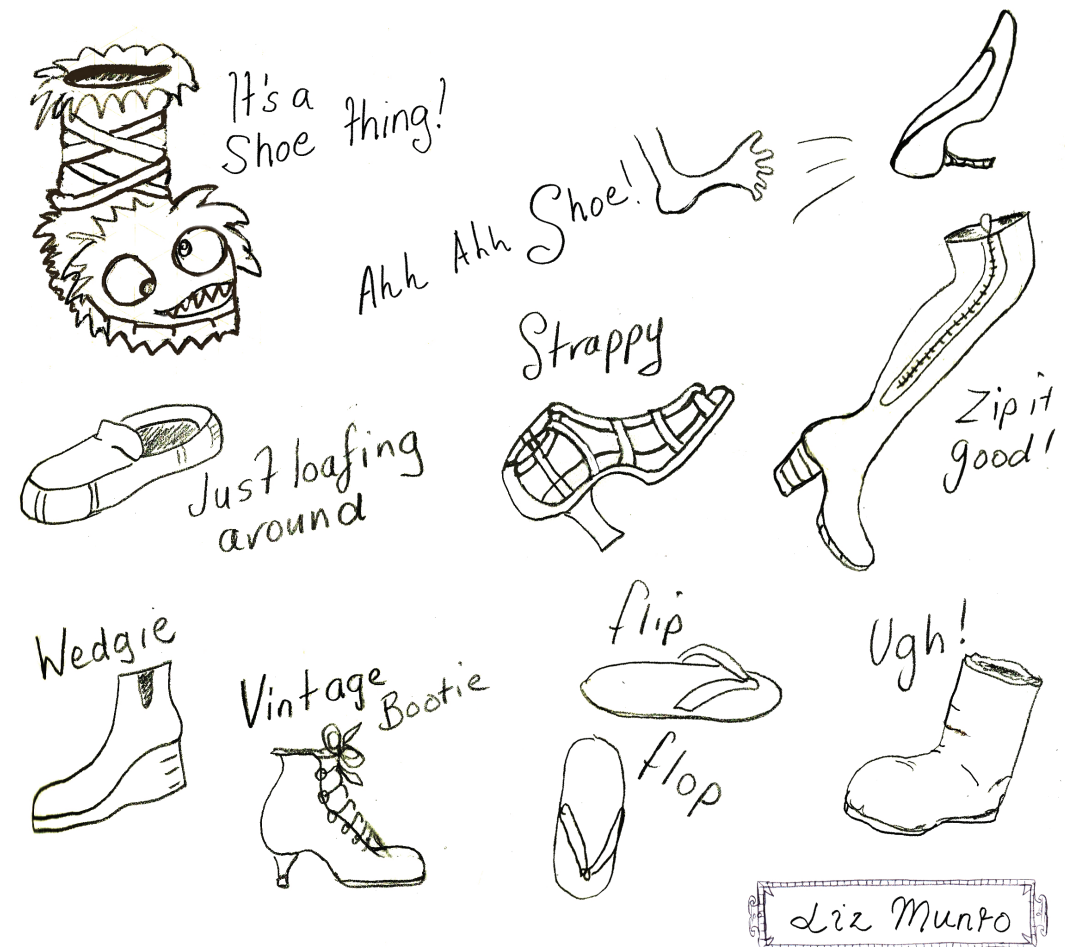 It's a
Shoe thing!
Ahh Ahh Shoe!
Strappy
Zip it
good!
Just loafing
around
Wedgie
Vintage
Bootie
flip
flop
Ugh!
Liz Munro